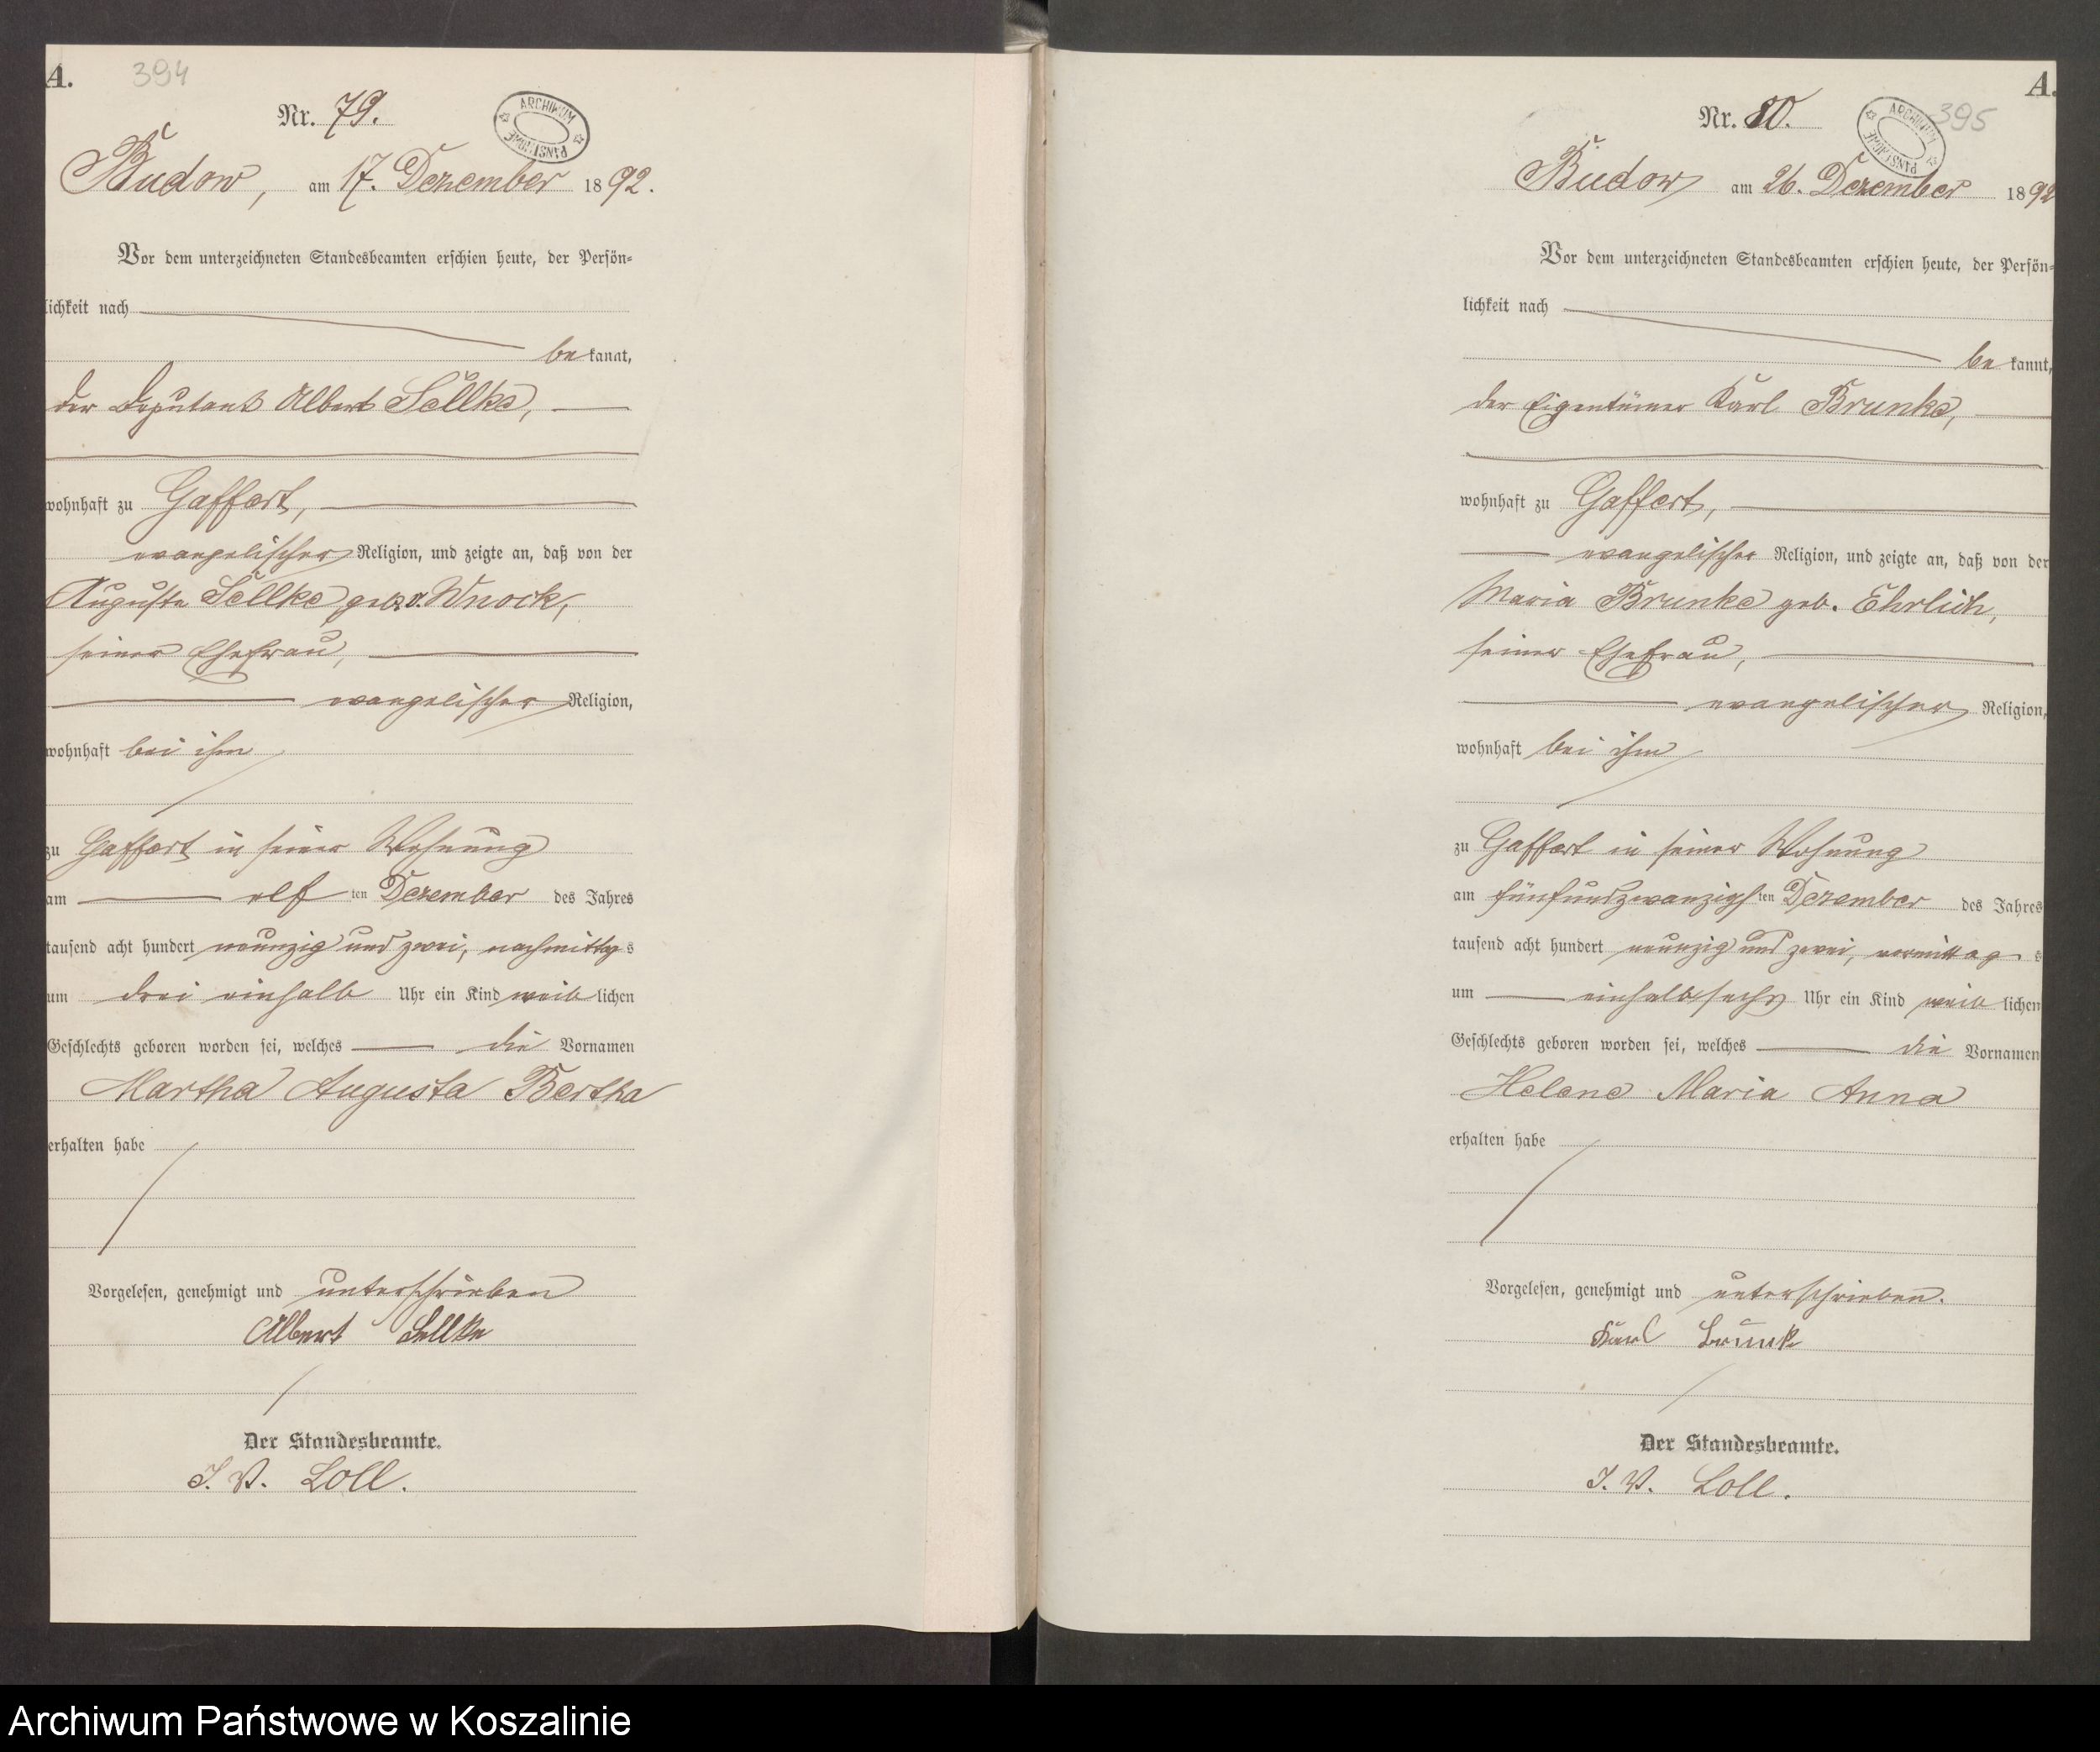 A.
394
Nr. 79.
ARCHIWUM PAŃSTWOWE
Budow, am 17. Dezember 1892.
Vor dem unterzeichneten Standesbeamten erschien heute, der Persön-
lichkeit nach
be kannt,
der Deputant Albert Sellke,
wohnhaft zu Gaffert,
evangelischer Religion, und zeigte an, daß von der
Auguste Sellke geb. v. Wnock,
seiner Ehefrau,
evangelischer Religion,
wohnhaft bei ihm
zu Gaffert in seiner Wohnung
am elf ten Dezember des Jahres
tausend acht hundert neunzig und zwei, nachmittag s
um drei einhalb Uhr ein Kind weib lichen
Geschlechts geboren worden sei, welches die Vornamen
Martha Augusta Bertha
erhalten habe
Vorgelesen, genehmigt und unterschrieben
Albert Sellke
Der Standesbeamte.
I. V. Loll.
A.
395
Nr. 80.
ARCHIWUM PAŃSTWOWE
Budow am 26. Dezember 1892
Vor dem unterzeichneten Standesbeamten erschien heute, der Persön-
lichkeit nach
be kannt,
der Eigentümer Karl Brunke,
wohnhaft zu Gaffert,
evangelischer Religion, und zeigte an, daß von der
Maria Brunke geb. Ehrlich,
seiner Ehefrau,
evangelischer Religion,
wohnhaft bei ihm
zu Gaffert in seiner Wohnung
am fünfundzwanzigs ten Dezember des Jahres
tausend acht hundert neunzig und zwei, vormittag s
um einhalb sechs Uhr ein Kind weib lichen
Geschlechts geboren worden sei, welches die Vornamen
Helene Maria Anna
erhalten habe
Vorgelesen, genehmigt und unterschrieben.
Karl Brunk
Der Standesbeamte.
I. V. Loll.
Archiwum Państwowe w Koszalinie